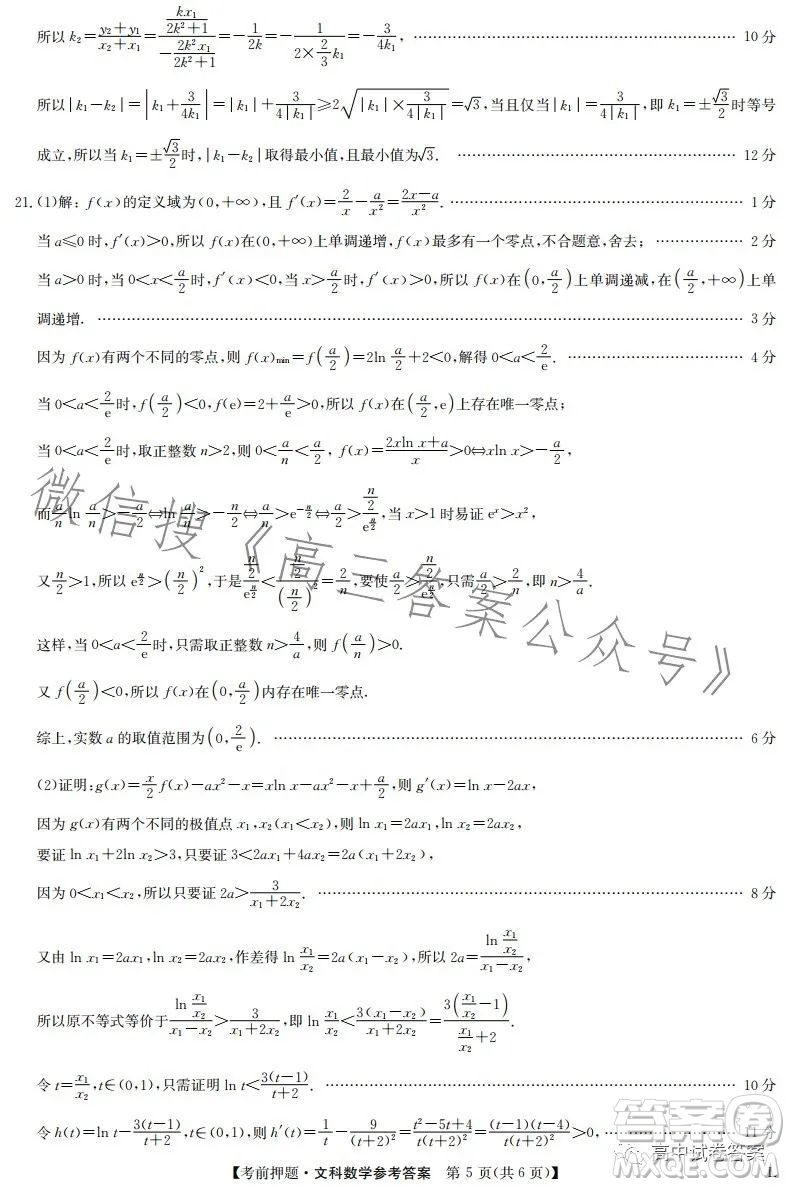 所以 k₂=(y₂+y₁)/(x₂+x₁)=(kx₁/(2k²+1))/(-2k²x₁/(2k²+1))=-1/(2k)=-1/(2×(2/3)k₁)=-3/(4k₁), …… 10 分
所以|k₁-k₂|=|k₁+3/(4k₁)|=|k₁|+3/(4|k₁|)≥2√(|k₁|×3/(4|k₁|))=√3,当且仅当|k₁|=3/(4|k₁|),即 k₁=±√3/2时等号
成立,所以当 k₁=±√3/2时,|k₁-k₂|取得最小值,且最小值为√3. …… 12 分
21.(1)解:f(x)的定义域为(0,+∞),且 f′(x)=2/x-a/x²=(2x-a)/x². …… 1 分
当 a≤0 时,f′(x)>0,所以 f(x)在(0,+∞)上单调递增,f(x)最多有一个零点,不合题意,舍去; …… 2 分
当 a>0 时,当 0<x<a/2时,f′(x)<0,当 x>a/2时,f′(x)>0,所以 f(x)在(0,a/2)上单调递减,在(a/2,+∞)上单
调递增. …… 3 分
因为 f(x)有两个不同的零点,则 f(x)min=f(a/2)=2ln a/2+2<0,解得 0<a<2/e. …… 4 分
当 0<a<2/e时,f(a/2)<0,f(e)=2+a/e>0,所以 f(x)在(a/2,e)上存在唯一零点;
当 0<a<2/e时,取正整数 n>2,则 0<a/n<a/2, f(x)=(2xln x+a)/x>0⇔xln x>-a/2,
而a/n ln a/n>-a/2⇔ln a/n>-n/2⇔a/n>e^(-n/2)⇔a/2>(n/2)/e^(n/2),当 x>1 时易证 eˣ>x²,
又n/2>1,所以 e^(n/2)>(n/2)²,于是(n/2)/e^(n/2)<(n/2)/(n/2)²=2/n,要使a/2>(n/2)/e^(n/2),只需a/2>2/n,即 n>4/a.
这样,当 0<a<2/e时,只需取正整数 n>4/a,则 f(a/n)>0.
又 f(a/2)<0,所以 f(x)在(0,a/2)内存在唯一零点.
综上,实数 a 的取值范围为(0,2/e). …… 6 分
(2)证明:g(x)=x/2 f(x)-ax²-x=xln x-ax²-x+a/2,则 g′(x)=ln x-2ax,
因为 g(x)有两个不同的极值点 x₁,x₂(x₁<x₂),则 ln x₁=2ax₁,ln x₂=2ax₂,
要证 ln x₁+2ln x₂>3,只要证 3<2ax₁+4ax₂=2a(x₁+2x₂),
因为 0<x₁<x₂,所以只要证 2a>3/(x₁+2x₂). …… 8 分
又由 ln x₁=2ax₁,ln x₂=2ax₂,作差得 ln x₁/x₂=2a(x₁-x₂),所以 2a=(ln x₁/x₂)/(x₁-x₂),
所以原不等式等价于(ln x₁/x₂)/(x₁-x₂)>3/(x₁+2x₂),即 ln x₁/x₂<3(x₁-x₂)/(x₁+2x₂)=3(x₁/x₂-1)/(x₁/x₂+2).
令 t=x₁/x₂,t∈(0,1),只需证明 ln t<3(t-1)/(t+2). …… 10 分
令 h(t)=ln t-3(t-1)/(t+2),t∈(0,1),则 h′(t)=1/t-9/(t+2)²=(t²-5t+4)/(t(t+2)²)=(t-1)(t-4)/(t(t+2)²)>0, …… 11 分
【考前押题·文科数学参考答案 第 5 页(共 6 页)】 L
微信搜《高三答案公众号》
答案圈
高中试卷答案
MXQE.COM